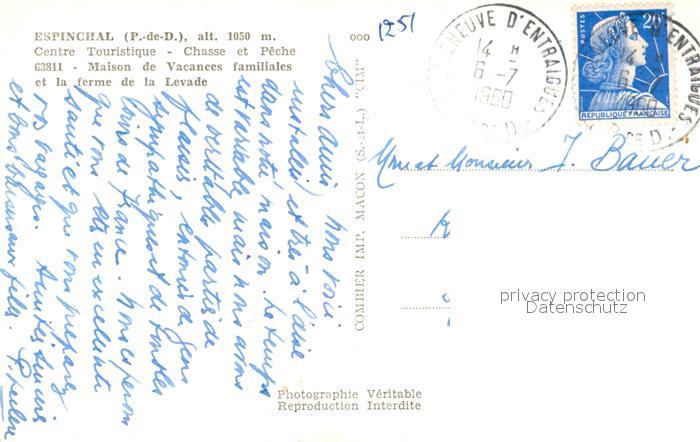 ESPINCHAL (P.-de-D.), alt. 1050 m.
Centre Touristique - Chasse et Pêche
63811 - Maison de Vacances familiales
et la ferme de la Levade
000
1251
NEUVE D'ENTRAIGUES
14 H
6-7
1960
DE D.
POSTES 20F
REPUBLIQUE FRANÇAISE
D'ENTRAIGUES
1960
DE D.
Mme et Monsieur J. Bauer
privacy protection
Datenschutz
COMBIER IMP. MACON (S.-et-L.) "CIM"
Chers amis, Nous voici
installés et très à l'aise
dans notre maison. Le temps
est variable mais nous avons
de véritables parties de
plaisir, entourés de gens
sympathiques et de tous les
coins de France. Nous espérons
que vous êtes en excellente
santé et que vous préparez
vos voyages. Amitiés sincères
et bons baisers aux filles.
Photographie Véritable
Reproduction Interdite